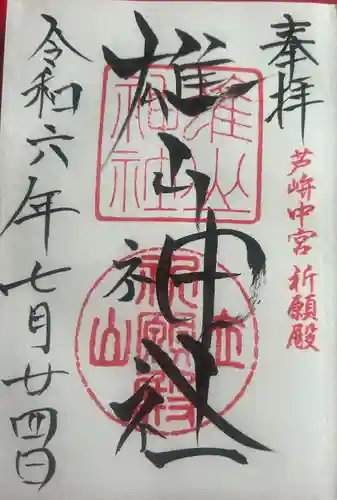 奉拝
芦峅中宮 祈願殿
雄山神社
雄山神社
立山
祈願殿
令和六年七月廿四日